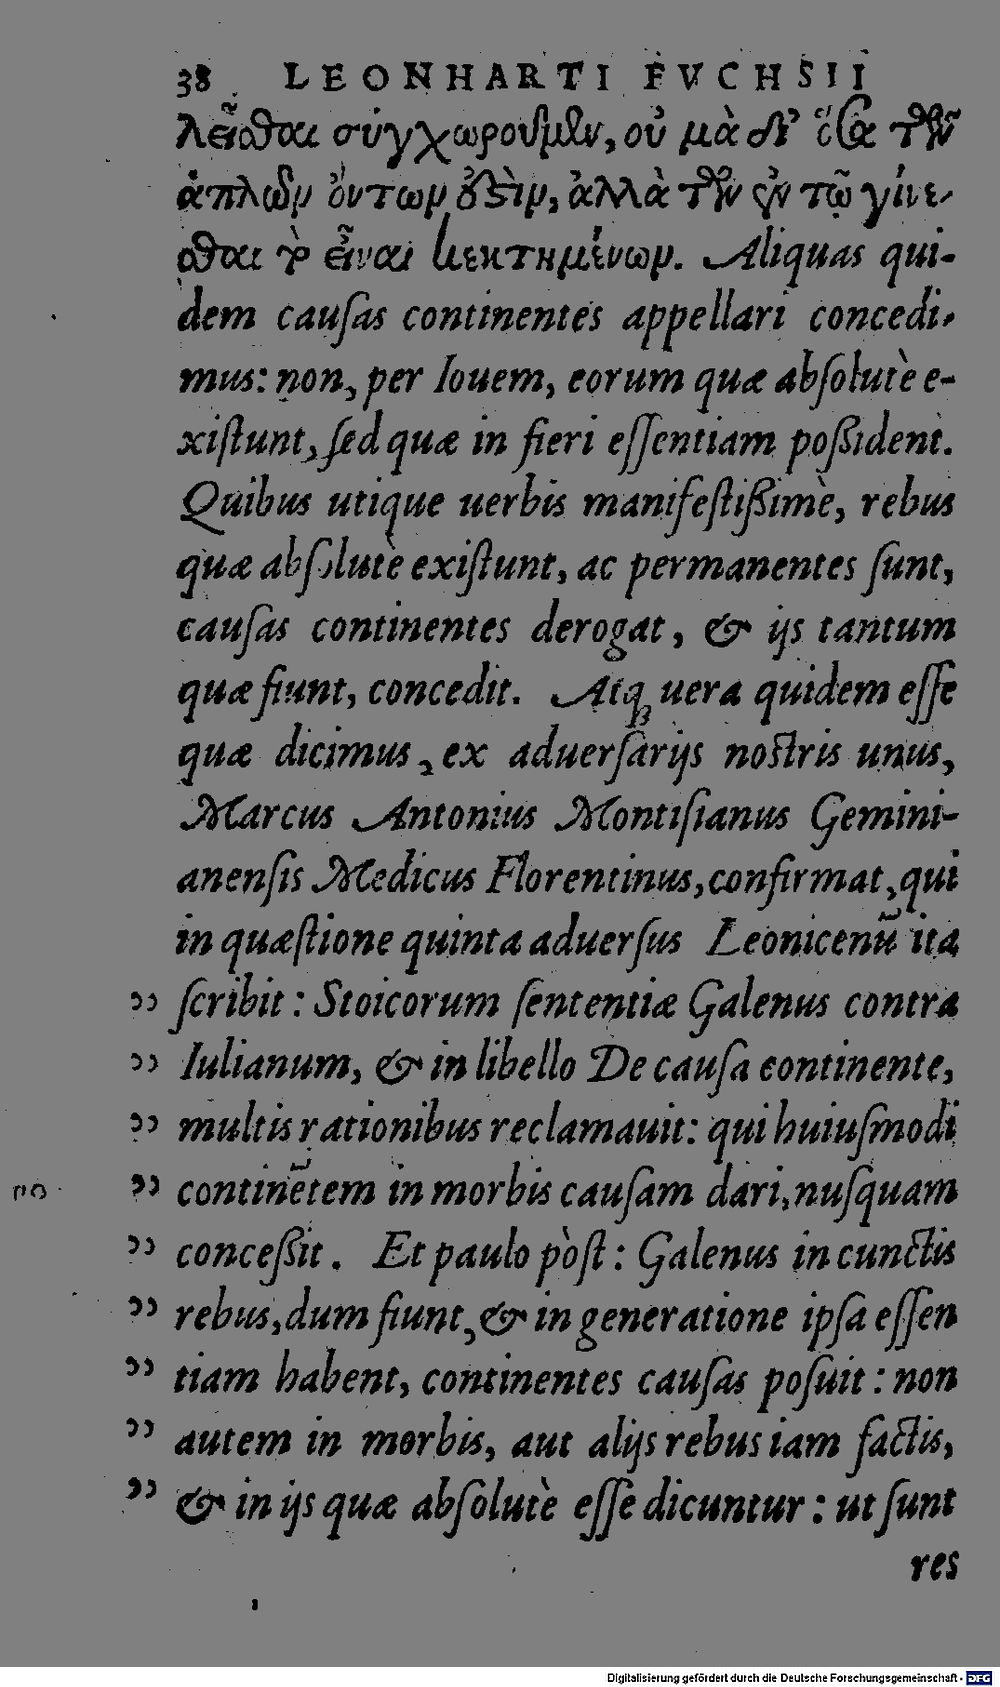 38 LEONHARTI FVCHSII
λεῖσθαι συγχωροῦμεν, οὐ μὰ δί' ὅσα τῶν
ἁπλῶν ὄντων ἐστὶν, ἀλλὰ τῶν ἐν τῷ γίνε-
σθαι τὸ εἶναι κεκτημένων. Aliquas qui-
dem cauſas continentes appellari concedi-
mus: non, per Iouem, eorum quæ abſolutè e-
xiſtunt, ſed quæ in fieri eſſentiam poßident.
Quibus utique uerbis manifeſtißimè, rebus
quæ abſolutè exiſtunt, ac permanentes ſunt,
cauſas continentes derogat, & ijs tantum
quæ fiunt, concedit. Atq; uera quidem eſſe
quæ dicimus, ex aduerſarijs noſtris unus,
Marcus Antonius Montiſianus Gemini-
anenſis Medicus Florentinus, confirmat, qui
in quæſtione quinta aduerſus Leonicenū ita
ſcribit: Stoicorum ſententiæ Galenus contra
Iulianum, & in libello De cauſa continente,
multis rationibus reclamauit: qui huiuſmodi
no continētem in morbis cauſam dari, nuſquam
conceßit. Et paulo pòſt: Galenus in cunctis
rebus, dum fiunt, & in generatione ipſa eſſen
tiam habent, continentes cauſas poſuit: non
autem in morbis, aut alijs rebus iam factis,
& in ijs quæ abſolutè eſſe dicuntur: ut ſunt
res
Digitalisierung gefördert durch die Deutsche Forschungsgemeinschaft - DFG